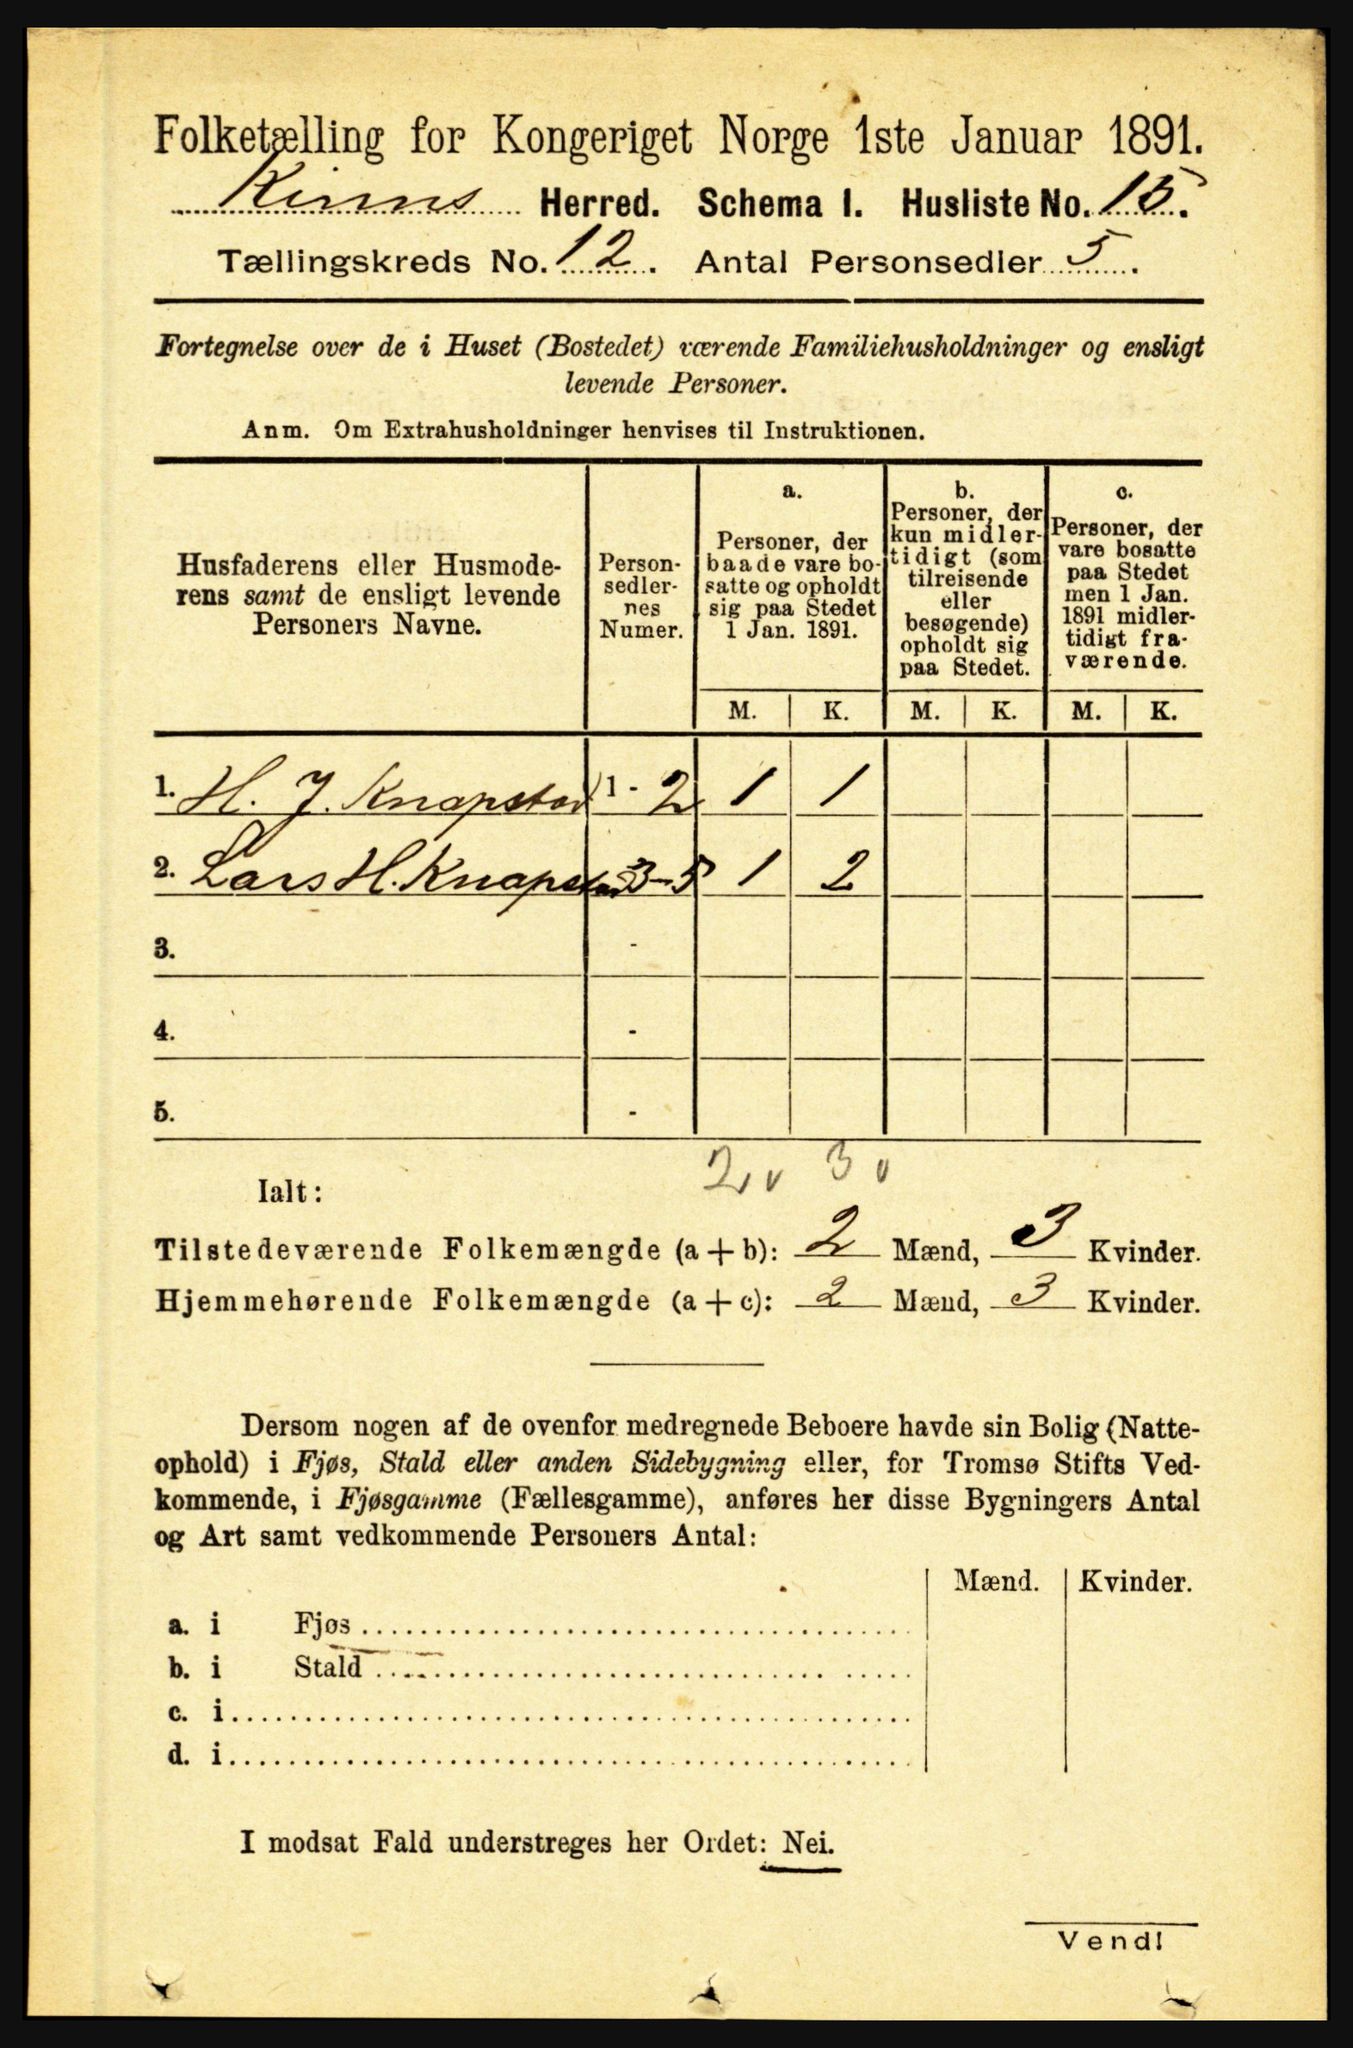 Folketælling for Kongeriget Norge 1ste Januar 1891.
Kinns Herred. Schema I. Husliste No. 15.
Tællingskreds No. 12. Antal Personsedler 5.
Fortegnelse over de i Huset (Bostedet) værende Familiehusholdninger og ensligt
levende Personer.
Anm. Om Extrahusholdninger henvises til Instruktionen.
Husfaderens eller Husmode-
rens samt de ensligt levende
Personers Navne.
Person-
sedler-
nes
Numer.
a.
Personer, der
baade vare bo-
satte og opholdt
sig paa Stedet
1 Jan. 1891.
b.
Personer, der
kun midler-
tidigt (som
tilreisende
eller
besøgende)
opholdt sig
paa Stedet.
c.
Personer, der
vare bosatte
paa Stedet
men 1 Jan.
1891 midler-
tidigt fra-
værende.
M. K. M. K. M. K.
1. H. J. Knapstad 1 - 2 1 1
2. Lars H. Knapstad 3-5 1 2
3. -
4. -
5. -
2 3
Ialt:
Tilstedeværende Folkemængde (a + b): 2 Mænd, 3 Kvinder.
Hjemmehørende Folkemængde (a + c): 2 Mænd, 3 Kvinder.
Dersom nogen af de ovenfor medregnede Beboere havde sin Bolig (Natte-
ophold) i Fjøs, Stald eller anden Sidebygning eller, for Tromsø Stifts Ved-
kommende, i Fjøsgamme (Fællesgamme), anføres her disse Bygningers Antal
og Art samt vedkommende Personers Antal:
Mænd. Kvinder.
a. i Fjøs
b. i Stald
c. i
d. i
I modsat Fald understreges her Ordet: Nei.
Vend!